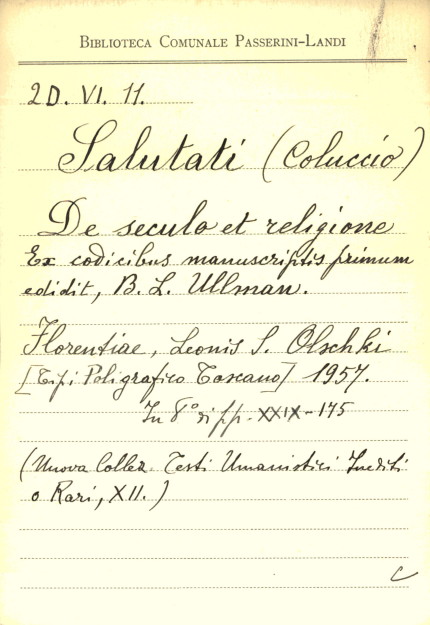 BIBLIOTECA COMUNALE PASSERINI-LANDI
2D. VI. 11.
Salutati (Coluccio)
De seculo et religione
Ex codicibus manuscriptis primum
edidit, B. L. Ullman.
Florentiae, Leonis S. Olschki
[Tipi Poligrafico Toscano] 1957.
In 8° di pp. XXIX-175
(Nuova Collez. Testi Umanistici Inediti
o Rari, XII.)
C